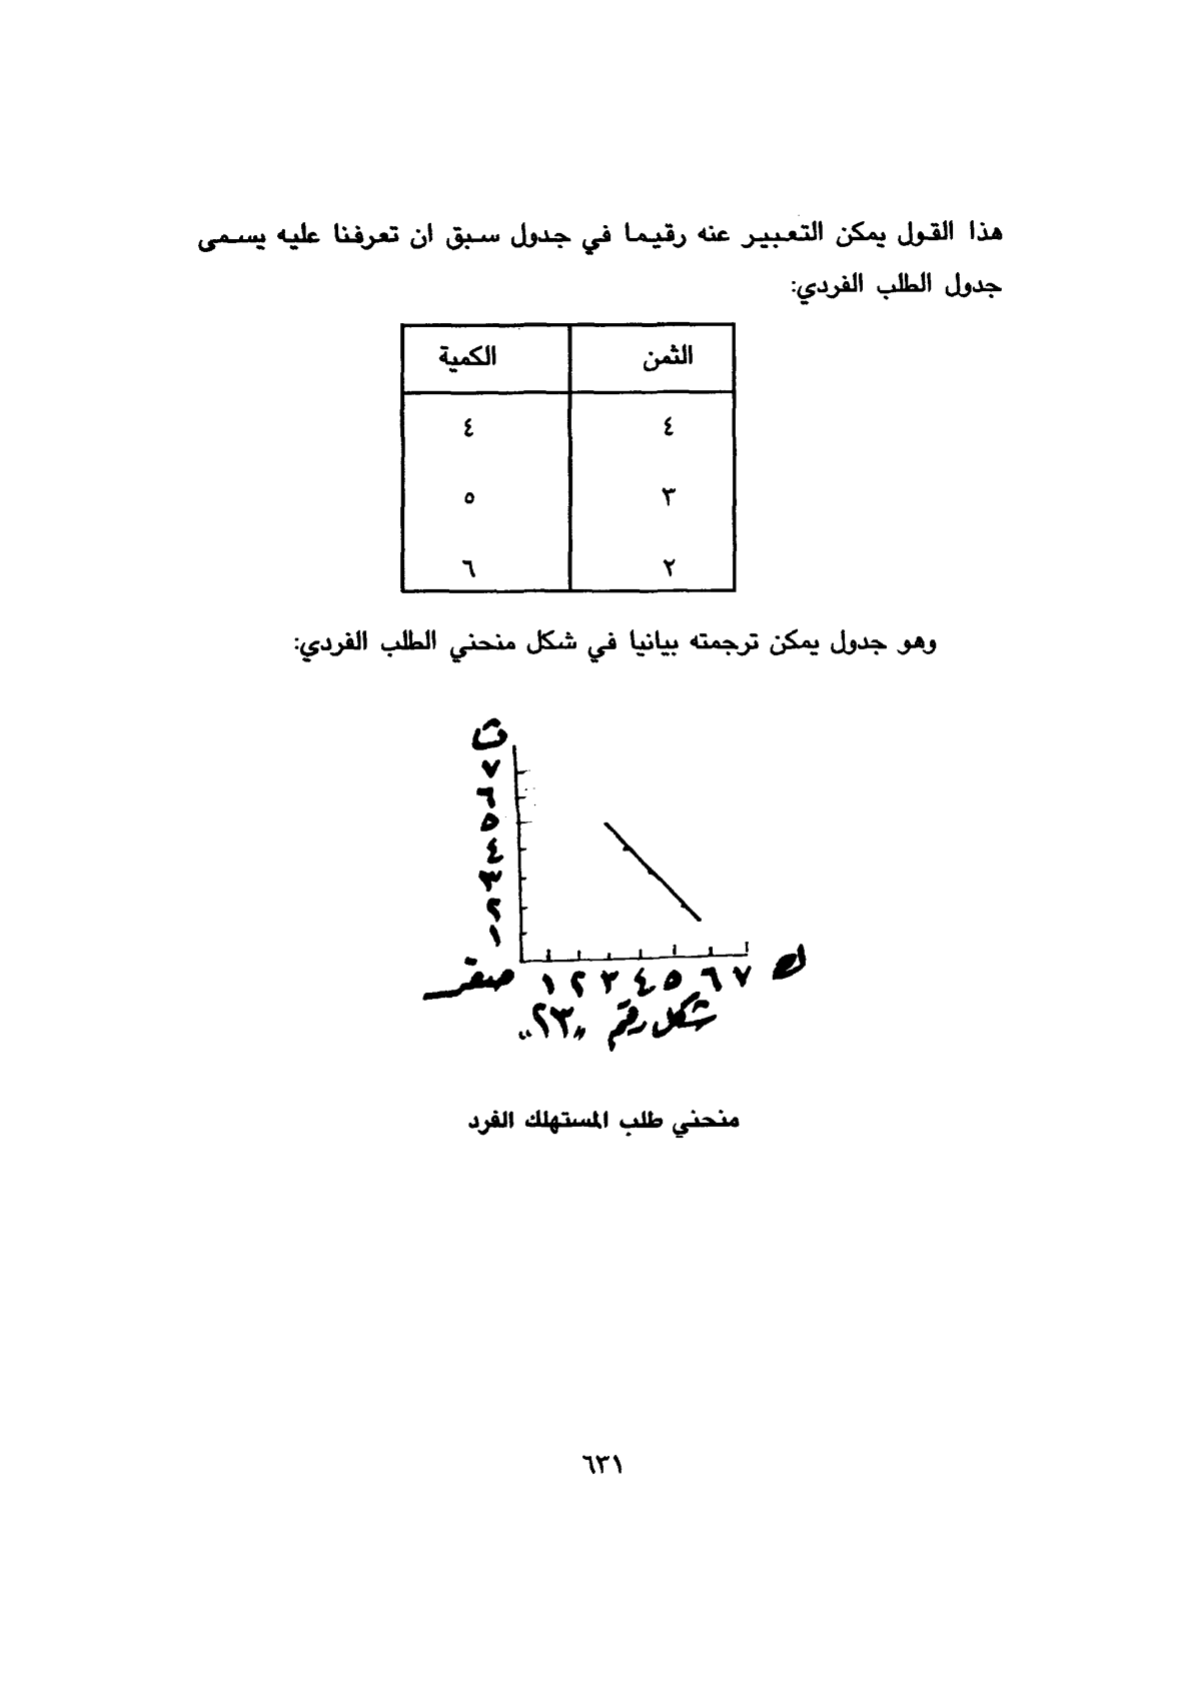 هذا القول يمكن التعبير عنه رقيما في جدول سبق ان تعرفنا عليه يسمى
جدول الطلب الفردي:
الثمن الكمية
٤ ٤
٣ ٥
٢ ٦
وهو جدول يمكن ترجمته بيانيا في شكل منحني الطلب الفردي:
ث
٧
٦
٥
٤
٣
٢
١
صفر ١ ٢ ٣ ٤ ٥ ٦ ٧ ك
شكل رقم "٢٣"
منحني طلب المستهلك الفرد
٦٣١